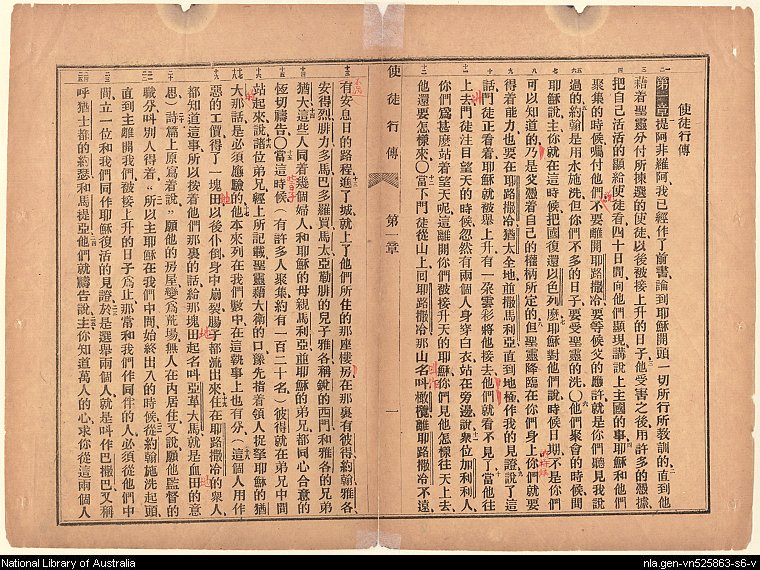 使徒行傳
第一章提阿非羅阿我已經作了前書論到耶穌開頭一切所行所教訓的、直到他
藉着聖靈分付所揀選的使徒以後被接上升的日子、他受害之後用許多的憑據、
把自己活活的顯給使徒看、四十日間向他們顯現、講說上主國的事、耶穌和他們
聚集的時候囑付他們不要離開耶路撒冷要等候父的應許就是你們聽見我說
過的、約翰是用水施洗、但你們不多的日子要受聖靈的洗、〇他們聚會的時候、問
耶穌說主你就在這時候把國復還以色列麽、耶穌對他們說時候日期、不是你們
可以知道的、乃是父憑着自己的權柄所定的、但聖靈降臨在你們身上、你們就要
得着能力也要在耶路撒冷猶太全地並撒馬利亞直到地極作我的見證說了這
話門徒正看着耶穌就被舉上升、有一朶雲彩將他接去、他們就看不見了、當他往
上去、門徒注目望天的時候忽然有兩個人身穿白衣站在旁邊說衆位加利利人、
你們爲甚麽站着望天呢、這離開你們被接升天的耶穌你們見他怎樣往天上去、
他還要怎樣來、〇當下門徒從山上回耶路撒冷那山名叫橄欖離耶路撒冷不遠、
使徒行傳 第一章 一
有安息日的路程、進了城、就上了他們所住的那座樓房、在那裏有彼得約翰雅各
安得烈腓力多馬巴多羅買馬太亞勒腓的兒子雅各稱銳的西門和雅各的兄弟
猶大、這些人同着幾個婦人和耶穌的母親馬利亞並耶穌的弟兄都同心合意的
恆切禱告、〇當這時候、(有許多人聚集約有一百二十名、)彼得就在弟兄中間
站起來說、諸位弟兄經上所記載聖靈藉大衛的口豫先指着領人捉拏耶穌的猶
大那話、是必須應驗的、他本來列在我們數中、在這執事上也有分、(這個人用作
惡的工價、得了一塊田、以後仆倒身中崩裂腸子都流出來、住在耶路撒冷的衆人
都知道這事、所以按着他們那裏的話給那塊田起名叫亞革大馬就是血田的意
思、)詩篇上原寫着說"願他的房屋變爲荒場、無人在內居住、又說願他監督的
職分、叫別人得着"、所以主耶穌在我們中間始終出入的時候、從約翰施洗起頭、
直到主離開我們被接上升的日子爲止、那常和我們作同伴的人、必須從他們中
間立一位和我們同作耶穌復活的見證、於是選舉兩個人、就是叫作巴撒巴又稱
呼猶士都的約瑟和馬提亞、他們就禱告說主你知道萬人的心、求你從這兩個人
National Library of Australia
nla.gen-vn525863-s6-v